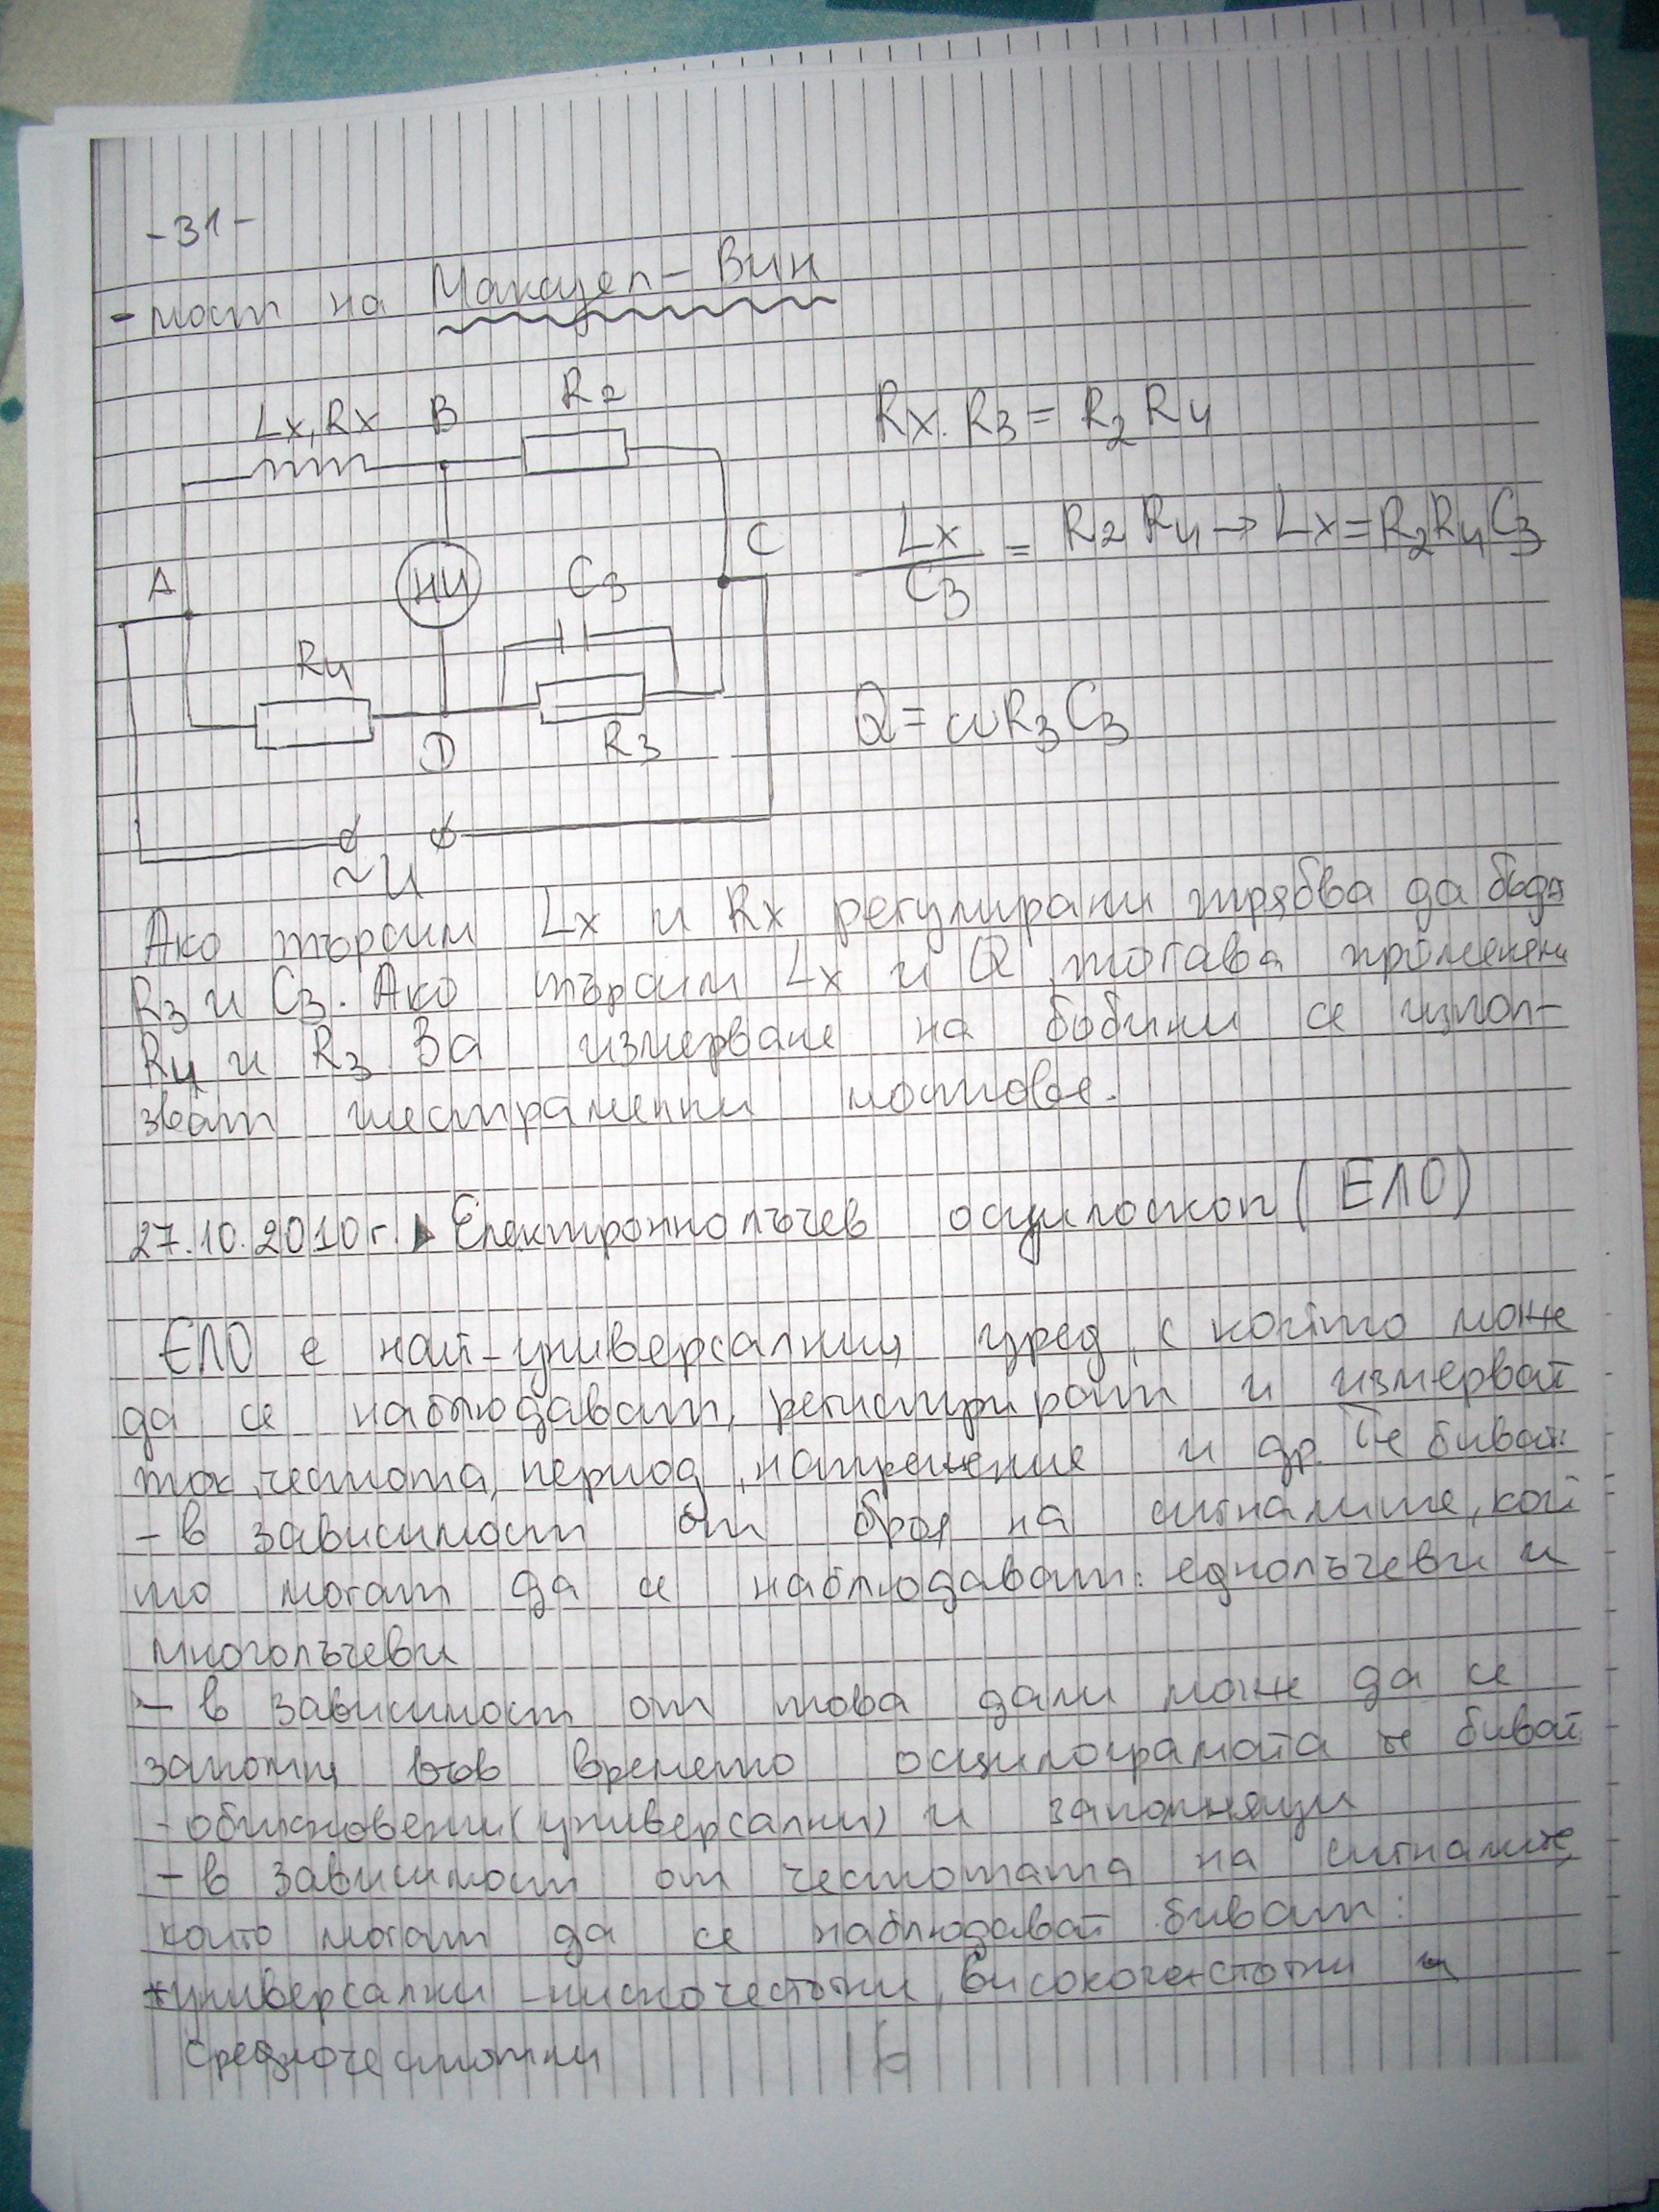 -31-
- мост на Максуел - Вин
Lx, Rx B R2
Rx. R3 = R2 R4
A НИ C3 C
Lx/C3 = R2 R4 → Lx = R2 R4 C3
R4
D R3
Q = ωR3C3
~U
Ако търсим Lx и Rx регулирани трябва да бъдат
R3 и C3. Ако търсим Lx и Q, тогава променени
R4 и R3 За измерване на бобини се изпол-
зват шестраменни мостове.
27.10.2010г. ▶ Електроннолъчев осцилоскоп (ЕЛО)
ЕЛО е най-универсалния уред, с който може
да се наблюдават, регистрират и измерват
ток, честота, период, напрежение и др. Те биват
- в зависимост от броя на сигналите, кои
то могат да се наблюдават: еднолъчеви и
многолъчеви
- в зависимост от това дали може да се
запомня във времето осцилограмата те биват
- обикновени (универсални) и запомнящи
- в зависимост от честотата на сигналите,
които могат да се наблюдават биват:
*универсални - нискочестотни, високочестотни и
средночестотни
16